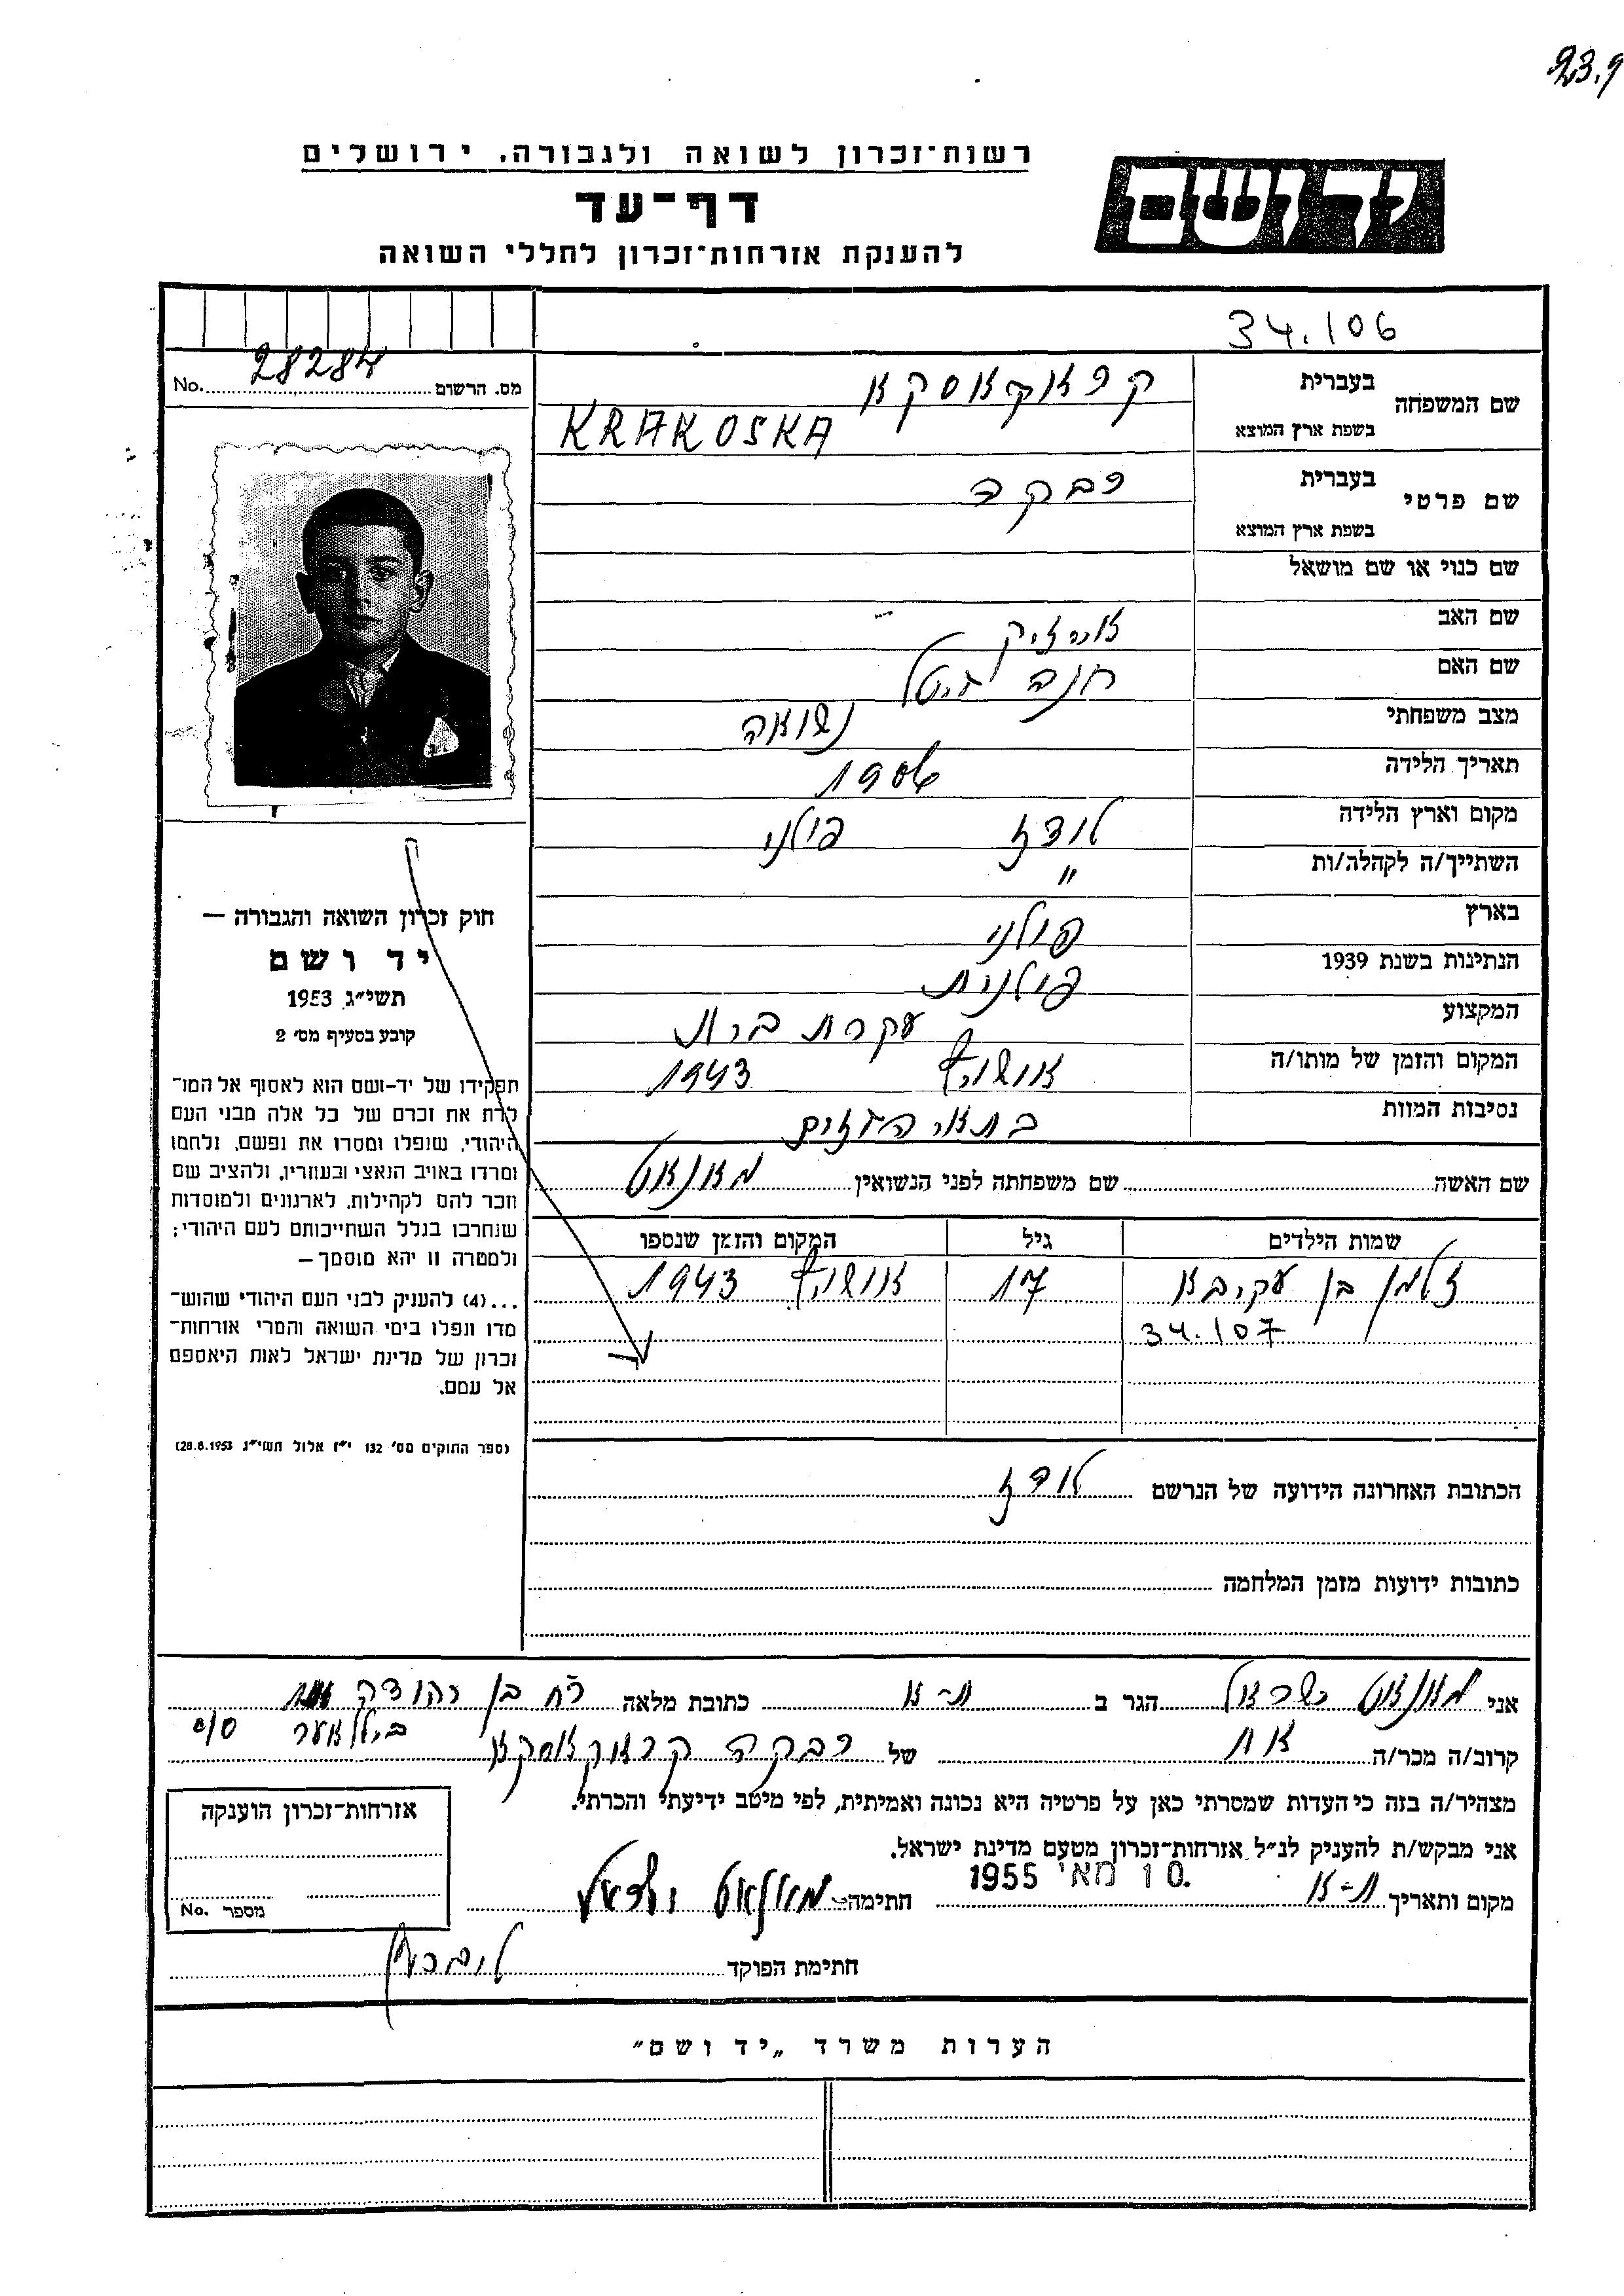 23.9
רשות־זכרון לשואה ולגבורה, ירושלים
דף־עד
להענקת אזרחות־זכרון לחללי השואה
יד ושם
34.106
מס. הרשום 28284 No.
שם המשפחה בעברית קראקאסקא
בשפת ארץ המוצא KRAKOSKA
שם פרטי בעברית רבקה
בשפת ארץ המוצא
שם כנוי או שם מושאל
שם האב אייזיק
שם האם חנה גיטל
מצב משפחתי נשואה
תאריך הלידה 1906
מקום וארץ הלידה לודז פולני
השתייך/ה לקהלה/ות "
בארץ פולני
הנתינות בשנת 1939 פולנית
המקצוע עקרת בית
המקום והזמן של מותו/ה אושויץ 1943
נסיבות המוות בתאי הגזים
שם האשה שם משפחתה לפני הנשואין מאנאט
שמות הילדים גיל המקום והזמן שנספו
זלמן בן עקיבא 17 אושויץ 1943
34.107
הכתובת האחרונה הידועה של הנרשם לודז
כתובות ידועות מזמן המלחמה
חוק זכרון השואה והגבורה —
יד ושם
תשי"ג 1953
קובע בסעיף מס' 2
תפקידו של יד-ושם הוא לאסוף אל המו־
לדת את זכרם של כל אלה מבני העם
היהודי, שנפלו ומסרו את נפשם, נלחמו
ומרדו באויב הנאצי ובעוזריו, ולהציב שם
וזכר להם לקהילות, לארגונים ולמוסדות
שנחרבו בגלל השתייכותם לעם היהודי;
ולמטרה זו יהא מוסמך—
...(4) להעניק לבני העם היהודי שהוש־
מדו ונפלו בימי השואה והמרי אזרחות־
זכרון של מדינת ישראל לאות היאספם
אל עמם.
(ספר החוקים מס' 132 י"ז אלול תשי"ג 28.8.1953)
אני מאנאט ישראל הגר ב ת-א כתובת מלאה רח בן יהודה
קרוב/ה מכר/ה אח של רבקה קראקאסקא
מצהיר/ה בזה כי העדות שמסרתי כאן על פרטיה היא נכונה ואמיתית, לפי מיטב ידיעתי והכרתי.
אני מבקש/ת להעניק לנ"ל אזרחות־זכרון מטעם מדינת ישראל.
מקום ותאריך ת-א 10 מאי 1955 חתימה מאנאט ישראל
אזרחות־זכרון הוענקה
מספר No.
חתימת הפוקד
הערות משרד „יד ושם"